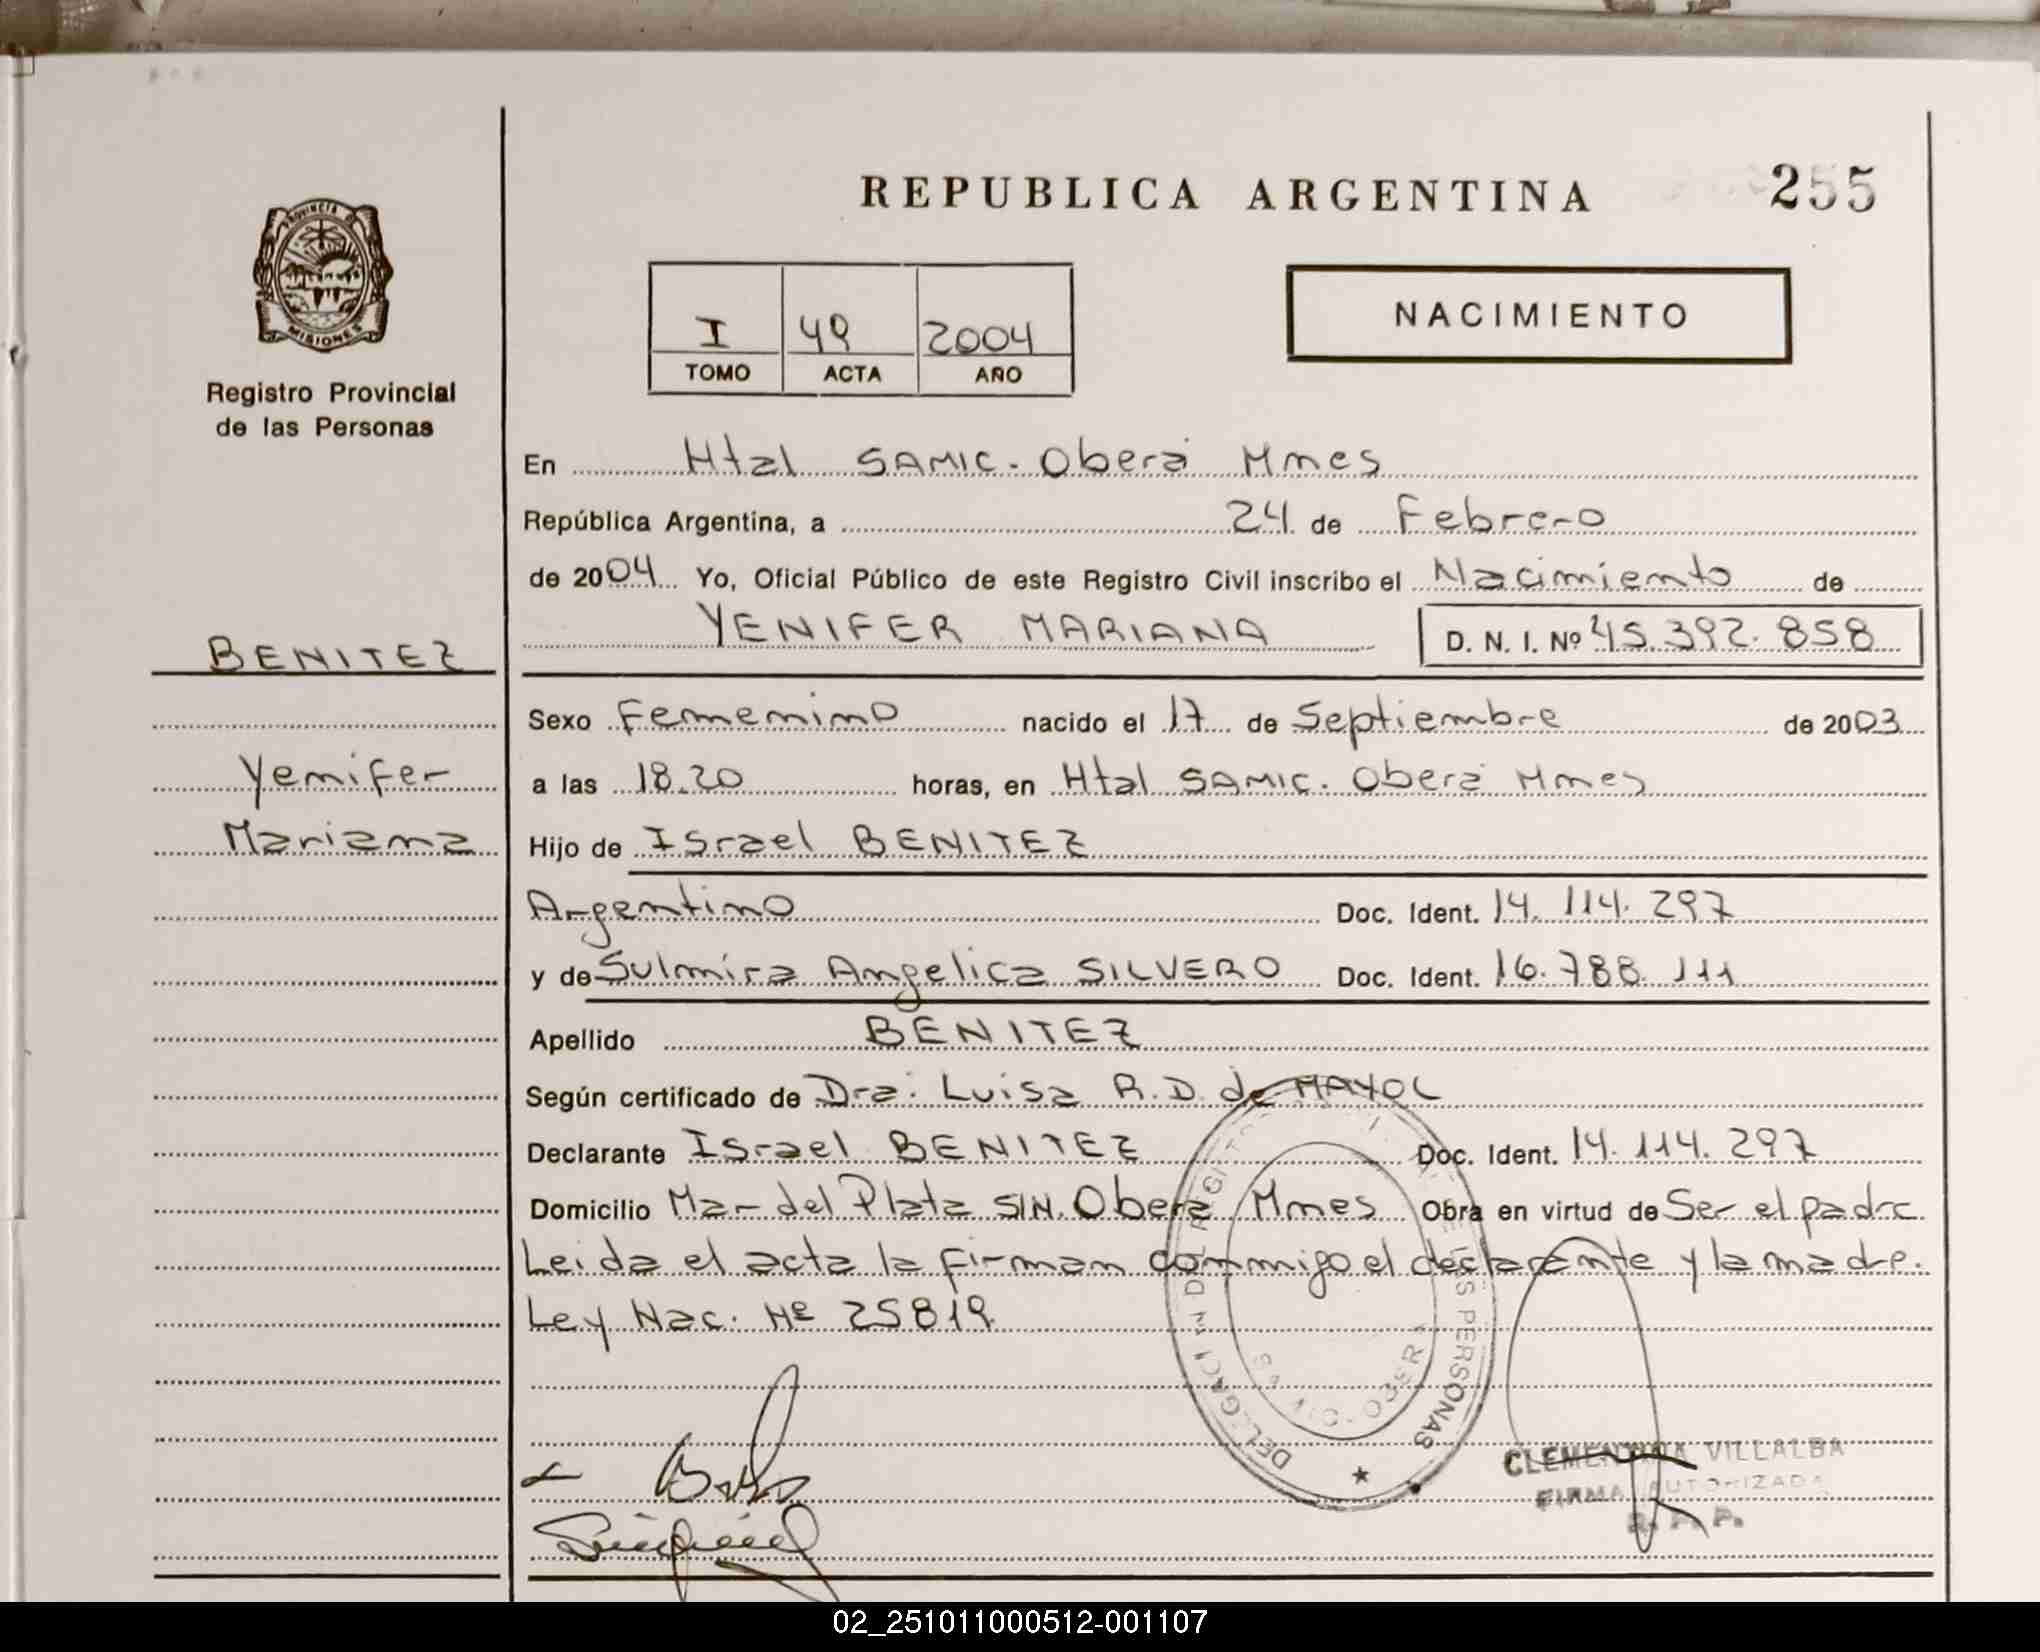 REPUBLICA ARGENTINA
255
PROVINCIA DE
MISIONES
Registro Provincial
de las Personas
I 49 2004
TOMO ACTA AÑO
NACIMIENTO
En Htal SAMIC. Oberá Mnes
República Argentina, a 24 de Febrero
de 2004 Yo, Oficial Público de este Registro Civil inscribo el Nacimiento de
YENIFER MARIANA D. N. I. Nº 45.392.858
BENITEZ
Yenifer
Mariana
Sexo Femenino nacido el 17 de Septiembre de 2003
a las 18.20 horas, en Htal SAMIC. Oberá Mnes
Hijo de Israel BENITEZ
Argentino Doc. Ident. 14.114.297
y de Sulmira Angelica SILVERO Doc. Ident. 16.788.111
Apellido BENITEZ
Según certificado de Dra. Luisa R.D. de MAYOL
Declarante Israel BENITEZ Doc. Ident. 14.114.297
Domicilio Mar del Plata S/N. Oberá Mnes Obra en virtud de Ser el padre
Leida el acta la firman conmigo el declarante y la madre.
Ley Nac. Nº 25819
DE LAS PERSONAS
CLEMENTINA VILLALBA
FIRMA AUTORIZADA
R. P. P.
02_251011000512-001107